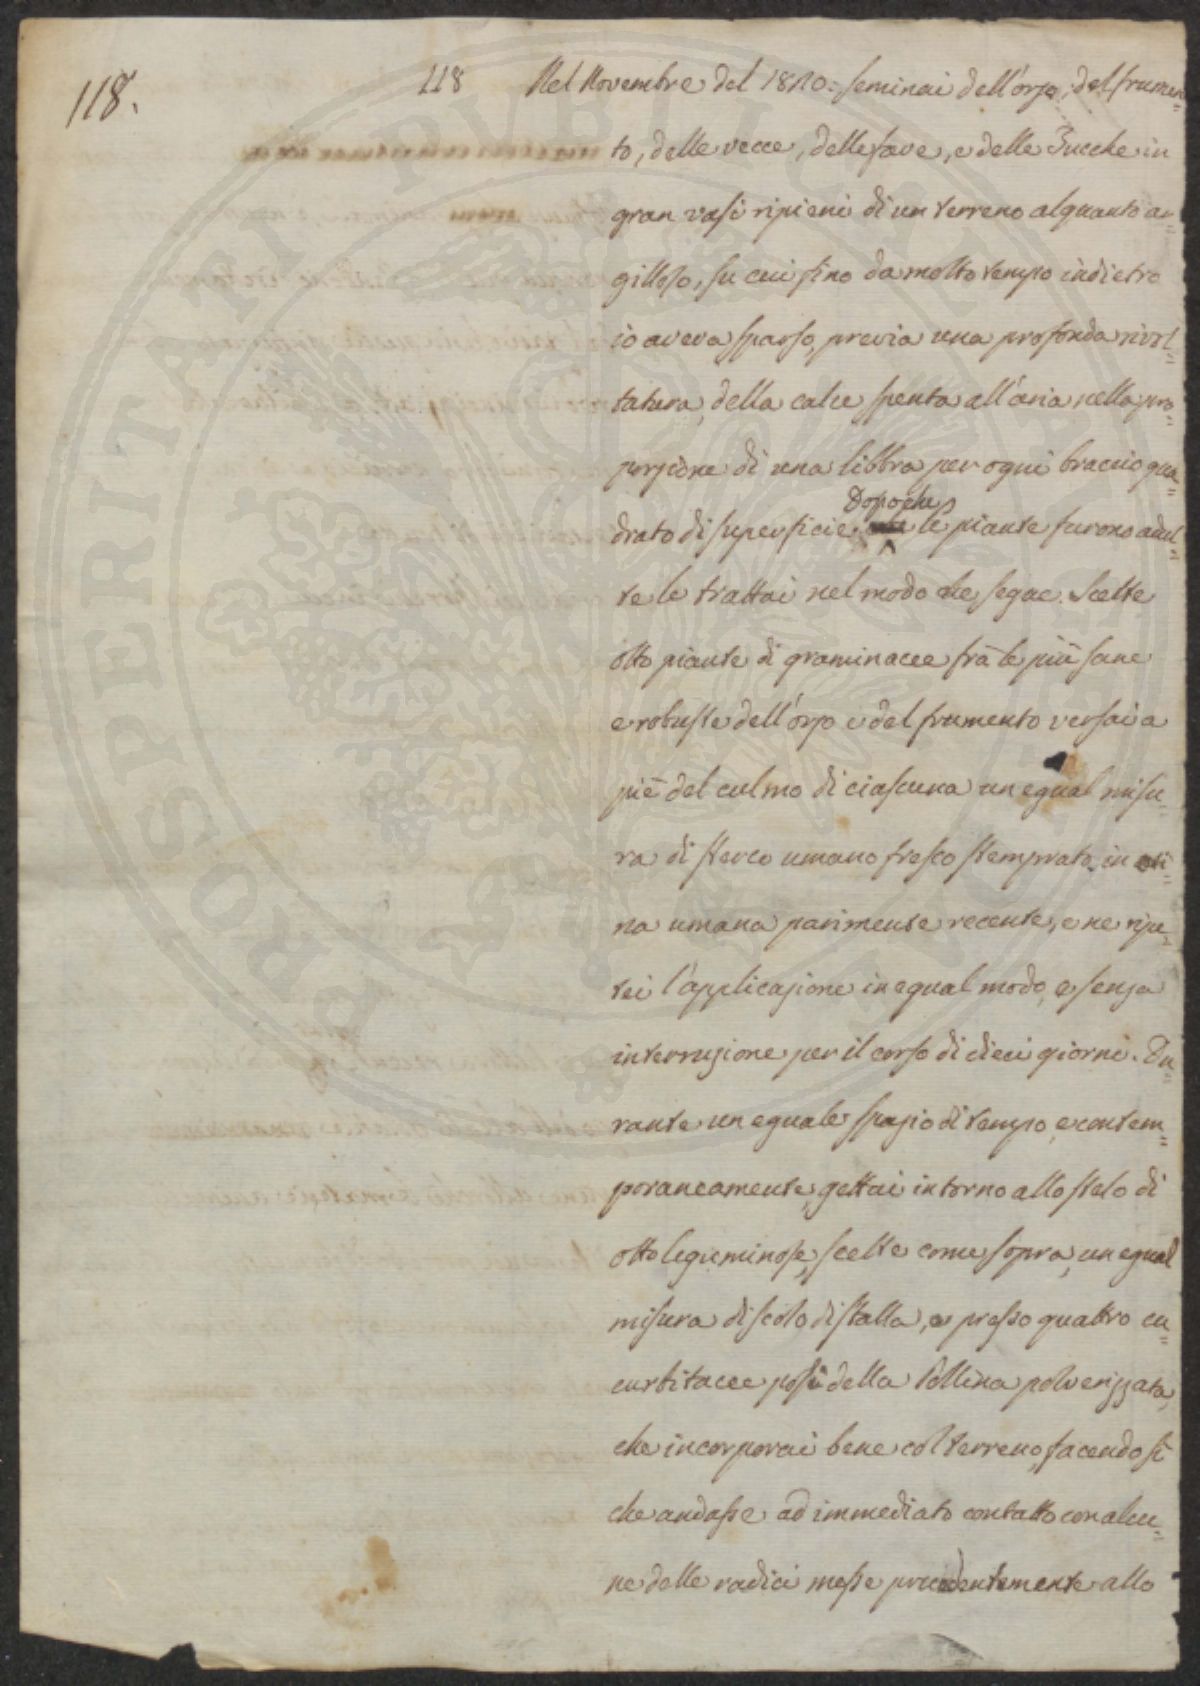 118.
118
Nel Novembre del 1810. seminai dell'orzo, del frumen=
to, delle vecce, delle fave, e delle Zucche in
gran vasi ripieni di un terreno alquanto ar=
gilloso, su cui fino da molto tempo indietro
io aveva sparso, previa una profonda rivol=
tatura, della calce spenta all'aria nella pro=
porzione di una libbra per ogni braccio qua=
Dopoche
drato di superficie. le piante furono adul=
te le trattai nel modo che segue. Scelte
otto piante di graminacee frà le più sane
e robuste dell'orzo e del frumento versai a
piè del culmo di ciascuna un egual misu=
ra di sterco umano fresco stemprato in ori=
na umana parimente recente, e ne ripe=
tei l'applicazione in egual modo, e senza
interruzione per il corso di dieci giorni. Du=
rante un eguale spazio di tempo, e contem=
poraneamente, gettai intorno allo stelo di
otto leguminose, scelte come sopra, un egual
misura di scolo di stalla, e presso quattro cu=
curbitacee posi della Pollina polverizzata,
che incorporai bene col terreno, facendo sì
che andasse ad immediato contatto con alcu=
ne delle radici messe precedentemente allo
PROSPERITATI PVBLICAE AVGENDAE